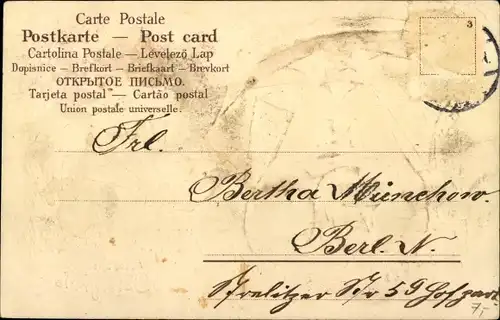 Carte Postale
Postkarte — Post card
Cartolina Postale — Levelező Lap
Dopisnice — Brefkort — Briefkaart — Brevkort
ОТКРЫТОЕ ПИСЬМО
Tarjeta postal — Cartão postal
Union postale universelle.
3
Frl.
Bertha Münchow.
Berl. N.
Strelitzer Str 59 Hof part
7,-